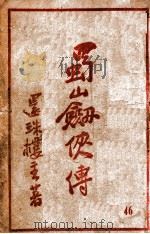 蜀山劍俠傳
還珠樓主著
46